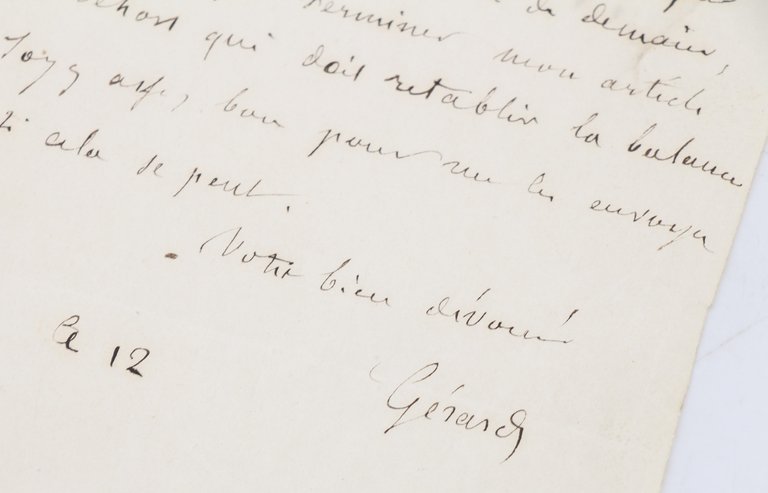 de demain,
terminer mon article
qui doit rétablir la balance
Soyez assez bon pour me les envoyer
si cela se peut.
Votre bien dévoué
Gérard
le 12